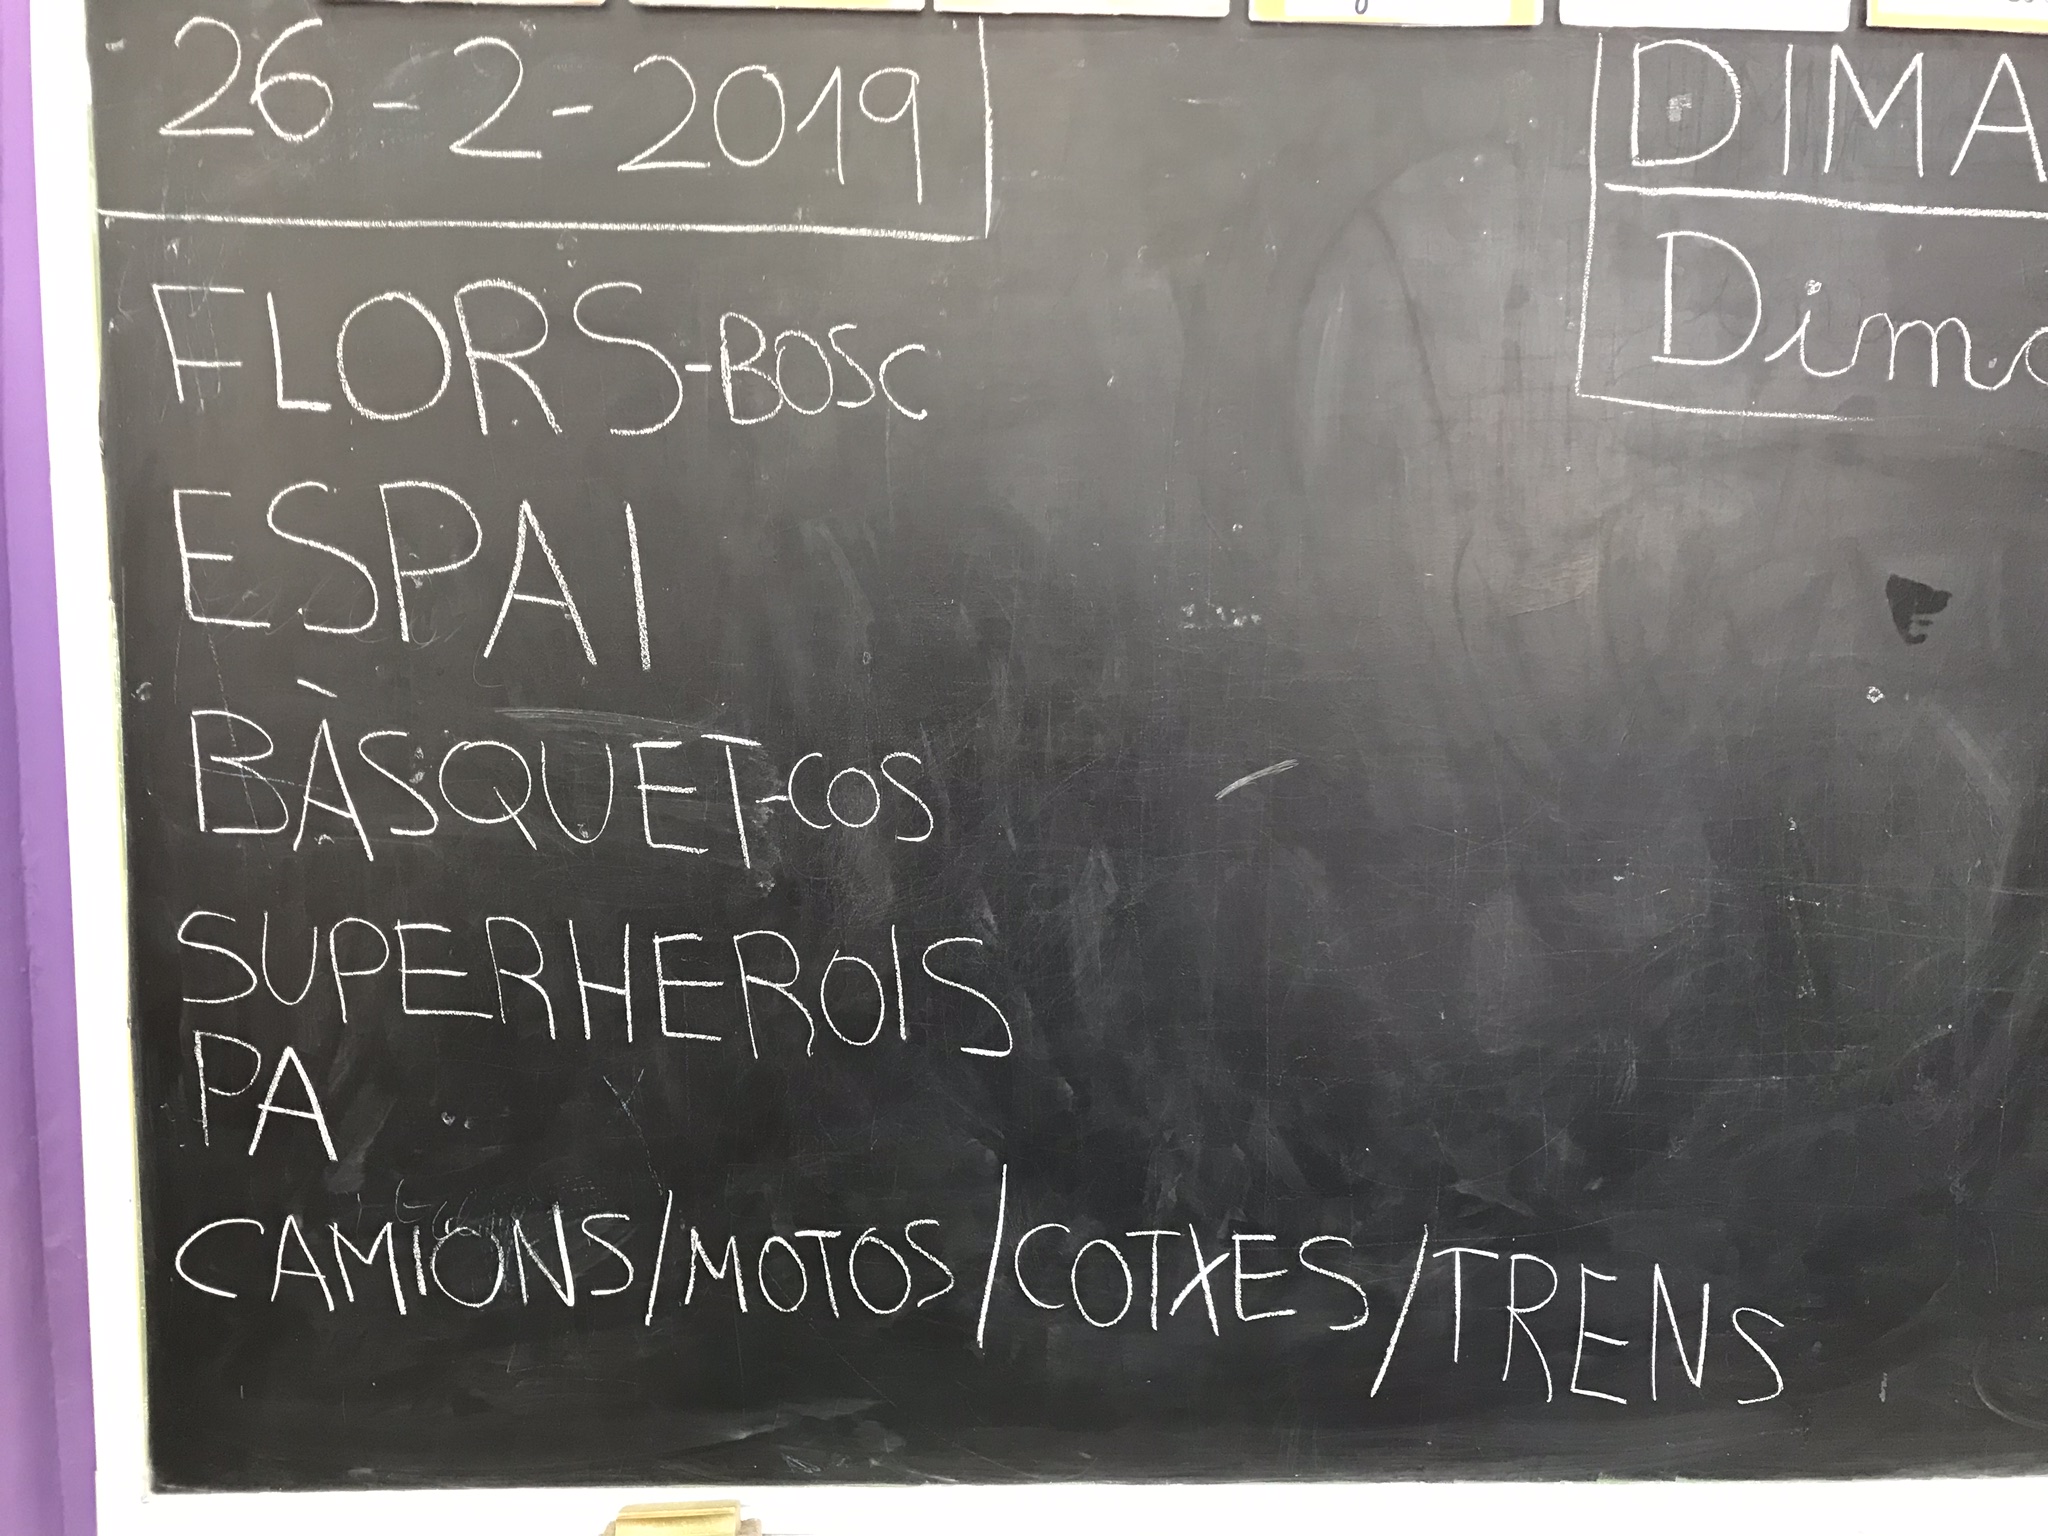 26-2-2019
DIMA
Dima
FLORS-BOSC
ESPAI
BÀSQUET-COS
SUPERHEROIS
PA
CAMIONS/MOTOS/COTXES/TRENS